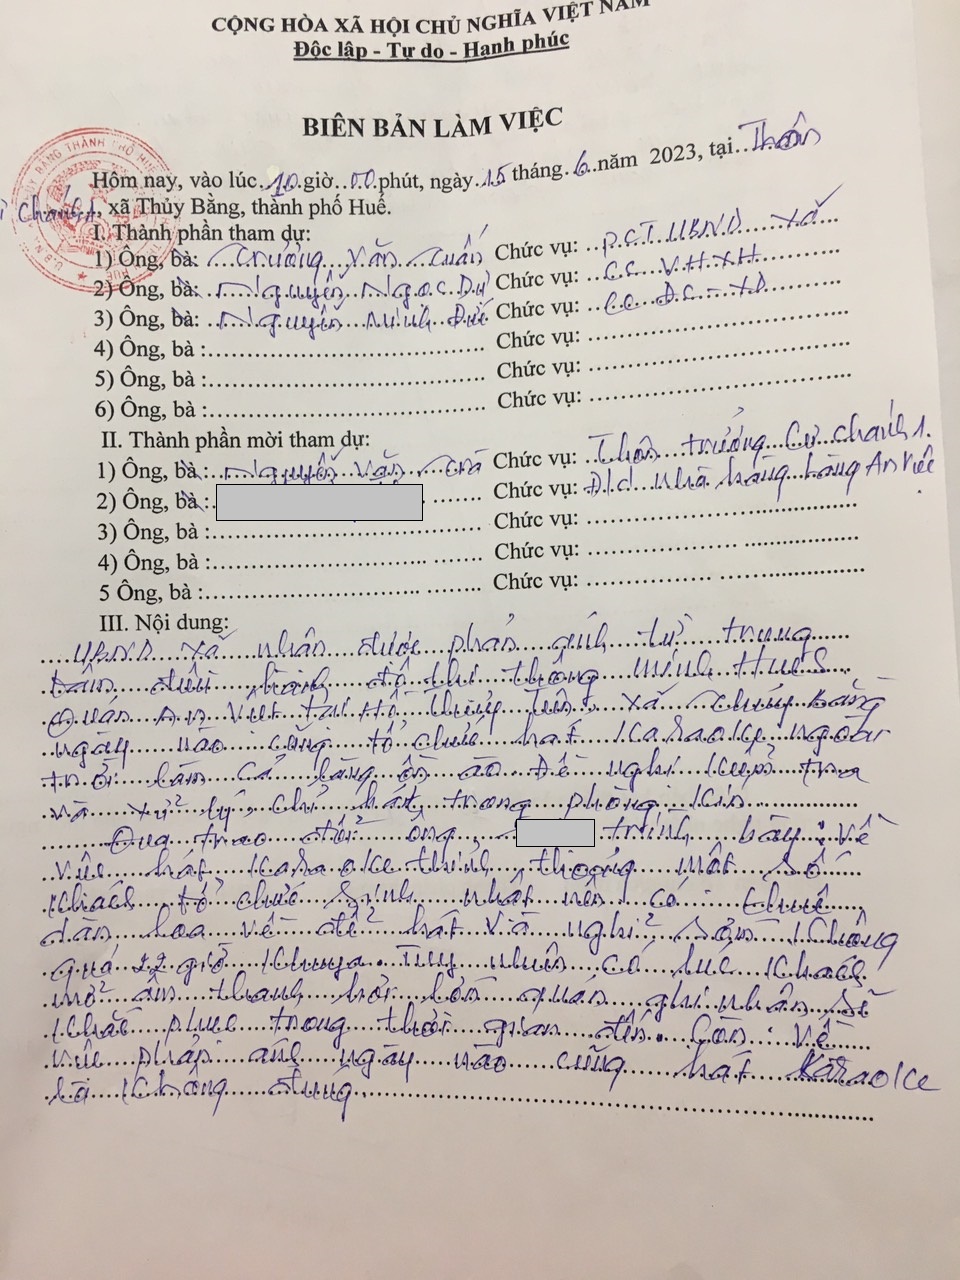 CỘNG HÒA XÃ HỘI CHỦ NGHĨA VIỆT NAM
Độc lập - Tự do - Hạnh phúc
BIÊN BẢN LÀM VIỆC
Hôm nay, vào lúc 10 giờ 00 phút, ngày 15 tháng 6 năm 2023, tại Thôn
Chánh 1, xã Thủy Bằng, thành phố Huế.
I. Thành phần tham dự:
1) Ông, bà: Trương Văn Tuấn Chức vụ: P.C.T UBND xã
2) Ông, bà: Nguyễn Ngọc Dự Chức vụ: CC VH-XH
3) Ông, bà: Nguyễn Minh Đức Chức vụ: CC ĐC-XD
4) Ông, bà : Chức vụ:
5) Ông, bà : Chức vụ:
6) Ông, bà : Chức vụ:
II. Thành phần mời tham dự:
1) Ông, bà : Nguyễn Văn Chức vụ: Thôn trưởng Cư Chánh 1.
2) Ông, bà : Chức vụ: Đ/d nhà hàng An Việt
3) Ông, bà : Chức vụ:
4) Ông, bà : Chức vụ:
5 Ông, bà : Chức vụ:
III. Nội dung:
UBND xã nhận được phản ánh từ trung
tâm điều hành đô thị thông minh HueS
Quán An Việt tại Hồ Thủy Tiên, xã Thủy Bằng
ngày nào cũng tổ chức hát Karaoke ngoài
trời làm cả làng ồn ào Đề nghị kiểm tra
và xử lý, chỉ hát trong phòng kín
Qua trao đổi ông trình bày: Về
việc hát karaoke thỉnh thoảng một số
khách tổ chức sinh nhật nên có thuê
dàn loa về để hát và nghỉ sớm không
quá 22 giờ khuya. Tuy nhiên có lúc khách
mở âm thanh hơi lớn quán ghi nhận sẽ
khắc phục trong thời gian đến. Còn về
việc phản ánh ngày nào cũng hát Karaoke
là không đúng